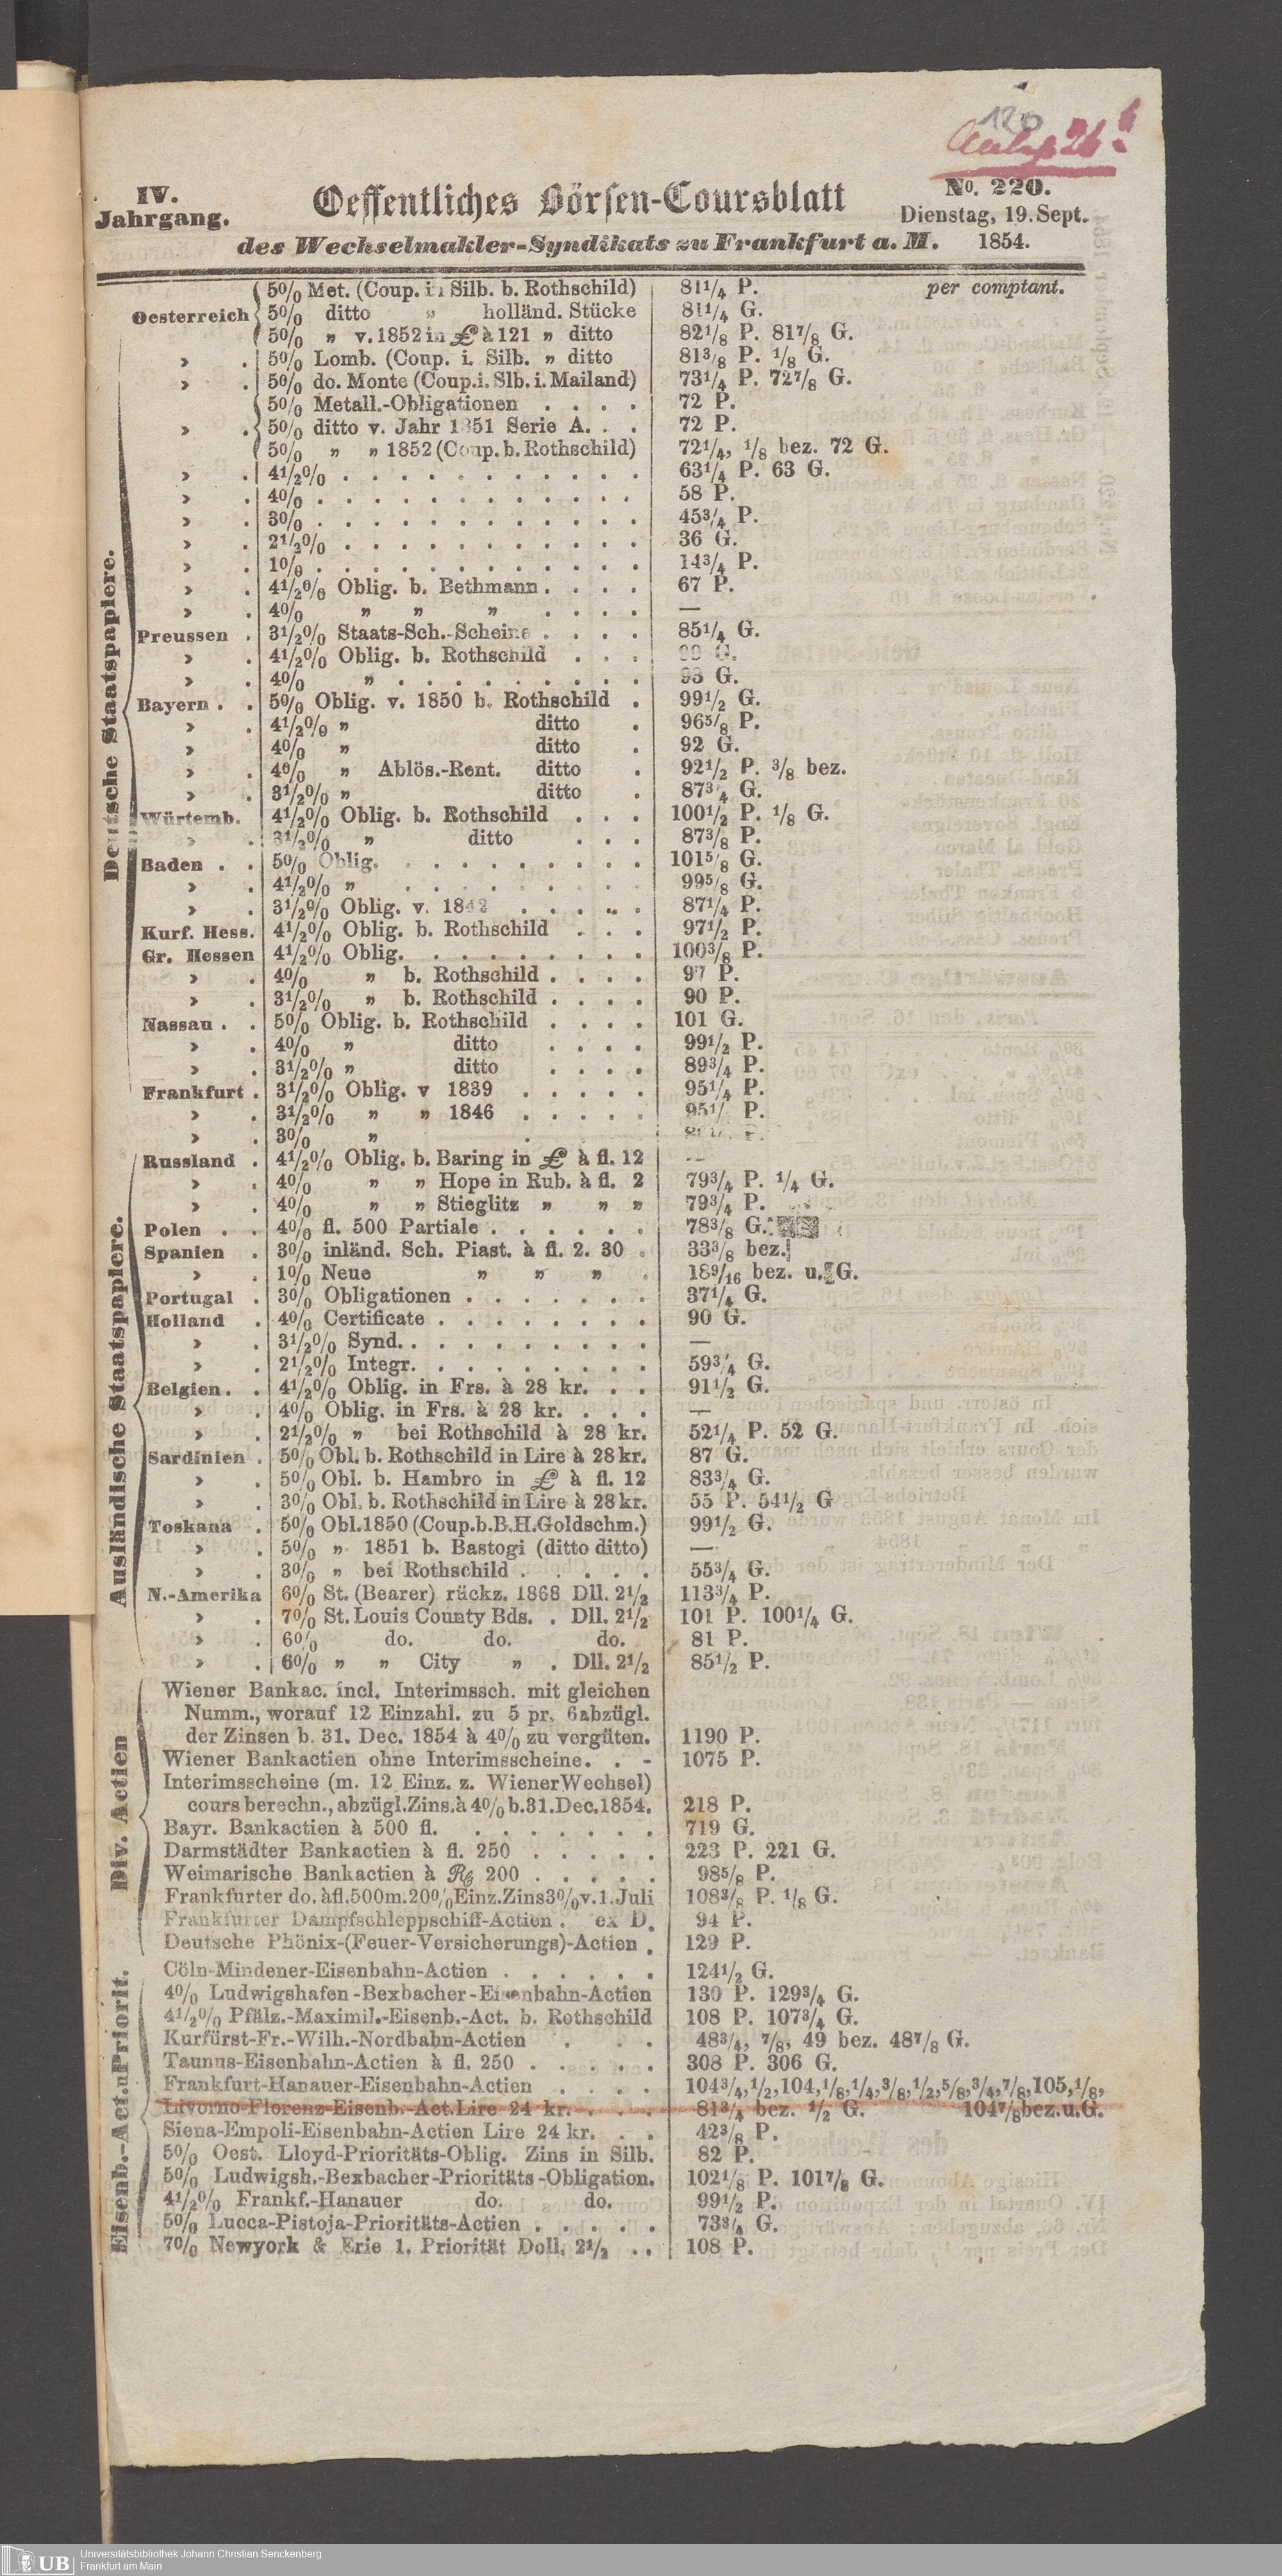 120
26
IV.
Jahrgang.
Oeffentliches Börsen-Coursblatt
des Wechselmakler-Syndikats zu Frankfurt a. M.
No. 220.
Dienstag, 19. Sept.
1854.
per comptant.
Deutsche Staatspapiere.
Oesterreich 5% Met. (Coup. i. Silb. b. Rothschild) 81¼ P.
5% ditto „ holländ. Stücke 81¼ G.
5% „ v. 1852 in £ à 121 „ ditto 82⅛ P. 81⅞ G.
» . 5% Lomb. (Coup. i. Silb. „ ditto 81⅜ P. ⅛ G.
» . 5% do. Monte (Coup. i. Slb. i. Mailand) 73¼ P. 72⅞ G.
5% Metall.-Obligationen . . . . 72 P.
» . 5% ditto v. Jahr 1851 Serie A. . . 72 P.
5% „ „ 1852 (Coup. b. Rothschild) 72¼, ⅛ bez. 72 G.
» . 4½% . . . . . . . . . . . 63¼ P. 63 G.
» . 4% . . . . . . . . . . . . 58 P.
» . 3% . . . . . . . . . . . . 45¾ P.
» . 2½% . . . . . . . . . . . 36 G.
» . 1% . . . . . . . . . . . . 14¾ P.
» . 4½% Oblig. b. Bethmann . . . . 67 P.
» . 4% „ „ „ . . . . —
Preussen . 3½% Staats-Sch.-Scheine . . . . 85¼ G.
» . 4½% Oblig. b. Rothschild . . . 99 G.
» . 4% „ . . . . . . . . . 93 G.
Bayern . . 5% Oblig. v. 1850 b. Rothschild . 99½ G.
» . 4½% „ ditto . 96⅝ P.
» . 4% „ ditto . 92 G.
» . 4% „ Ablös.-Rent. ditto . 92½ P. ⅜ bez.
» . 3½% „ ditto . 87¾ G.
Würtemb. 4½% Oblig. b. Rothschild . . . 100½ P. ⅛ G.
» . 3½% „ ditto . . . 87⅜ P.
Baden . . 5% Oblig. . . . . . . . . . 101⅝ G.
» . 4½% „ . . . . . . . . 99⅝ G.
» . 3½% Oblig. v. 1842 . . . . . 87¼ P.
Kurf. Hess. 4½% Oblig. b. Rothschild . . . 97½ P.
Gr. Hessen 4½% Oblig. . . . . . . . . 100⅜ P.
» . 4% „ b. Rothschild . . . . 97 P.
» . 3½% „ b. Rothschild . . . . 90 P.
Nassau . . 5% Oblig. b. Rothschild . . . . 101 G.
» . 4% „ ditto . . . . 99½ P.
» . 3½% „ ditto . . . . 89¾ P.
Frankfurt . 3½% Oblig. v 1839 . . . . . 95¼ P.
» . 3½% „ „ 1846 . . . . . 95 P.
» . 3% „ . . . P.
Ausländische Staatspapiere.
Russland . 4½% Oblig. b. Baring in £ à fl. 12 —
» . 4% „ „ Hope in Rub. à fl. 2 79¾ P. ¼ G.
» . 4% „ „ Stieglitz „ „ „ 79¾ P.
Polen . . 4% fl. 500 Partiale . . . . . . 78⅜ G.
Spanien . 3% inländ. Sch. Piast. à fl. 2. 30 . 33⅜ bez.
» . 1% Neue „ „ „ . 18⁹⁄₁₆ bez. u. G.
Portugal . 3% Obligationen . . . . . . . 37¼ G.
Holland . 4% Certificate . . . . . . . . 90 G.
» . 3½% Synd. . . . . . . . . . —
» . 2½% Integr. . . . . . . . . 59¾ G.
Belgien . . 4½% Oblig. in Frs. à 28 kr. . . . 91½ G.
» . 4% Oblig. in Frs. à 28 kr. . . . . —
» . 2½% „ bei Rothschild à 28 kr. 52¼ P. 52 G.
Sardinien . 5% Obl. b. Rothschild in Lire à 28 kr. 87 G.
» . 5% Obl. b. Hambro in £ à fl. 12 83¾ G.
» . 3% Obl. b. Rothschild in Lire à 28 kr. 55 P. 54½ G
Toskana . 5% Obl. 1850 (Coup. b. B. H. Goldschm.) 99½ G.
» . 5% „ 1851 b. Bastogi (ditto ditto) —
» . 3% „ bei Rothschild . . . . . 55¾ G.
N.-Amerika 6% St. (Bearer) rückz. 1868 Dll. 2½ 113¾ P.
» . 7% St. Louis County Bds. . Dll. 2½ 101 P. 100¼ G.
» . 6% do. do. do. 81 P.
» . 6% „ „ City „ . Dll. 2½ 85½ P.
Div. Actien
Wiener Bankac. incl. Interimssch. mit gleichen
Numm., worauf 12 Einzahl. zu 5 pr. 6 abzügl.
der Zinsen b. 31. Dec. 1854 à 4% zu vergüten. 1190 P.
Wiener Bankactien ohne Interimsscheine. . - 1075 P.
Interimsscheine (m. 12 Einz. z. Wiener Wechsel)
cours berechn., abzügl. Zins. à 4% b. 31. Dec. 1854. 218 P.
Bayr. Bankactien à 500 fl. . . . . . . . 719 G.
Darmstädter Bankactien à fl. 250 . . . . . 223 P. 221 G.
Weimarische Bankactien à Rt. 200 . . . . . 98⅝ P.
Frankfurter do. à fl. 500 m. 20% Einz. Zins 3% v. 1. Juli 108⅜ P. ⅛ G.
Frankfurter Dampfschleppschiff-Actien . ex D. 94 P.
Deutsche Phönix-(Feuer-Versicherungs)-Actien . 129 P.
Eisenb.-Act. u Priorit.
Cöln-Mindener-Eisenbahn-Actien . . . . . . 124½ G.
4% Ludwigshafen-Bexbacher-Eisenbahn-Actien 130 P. 129¾ G.
4½% Pfälz.-Maximil.-Eisenb.-Act. b. Rothschild 108 P. 107¾ G.
Kurfürst-Fr.-Wilh.-Nordbahn-Actien . . . 48¾, ⅞, 49 bez. 48⅞ G.
Taunus-Eisenbahn-Actien à fl. 250 . . . . . 308 P. 306 G.
Frankfurt-Hanauer-Eisenbahn-Actien . . . . 104¾, ½, 104, ⅛, ¼, ⅜, ½, ⅝, ¾, ⅞, 105, ⅛,
Livorno-Florenz-Eisenb.-Act. Lire 24 kr. . . . 81¾ bez. ½ G. 104⅞ bez. u. G.
Siena-Empoli-Eisenbahn-Actien Lire 24 kr. . . 42⅜ P.
5% Oest. Lloyd-Prioritäts-Oblig. Zins in Silb. 82 P.
5% Ludwigsh.-Bexbacher-Prioritäts-Obligation. 102⅛ P. 101⅞ G.
4½% Frankf.-Hanauer do. do. 99½ P.
5% Lucca-Pistoja-Prioritäts-Actien . . . . . 73¾ G.
7% Newyork & Erie 1. Priorität Doll. 2½ . . 108 P.
UB Universitätsbibliothek Johann Christian Senckenberg
Frankfurt am Main